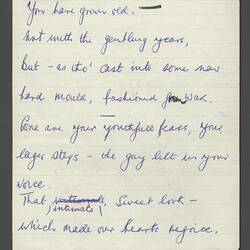 You have grown old.
Not with the gentling years,
But - as tho' cast into some new
hard mould, fashioned from wax.
Gone are your youthfull fears, your
eager steps - the gay lilt in your
voice.
That intimate, sweet look -
which made our hearts rejoice.